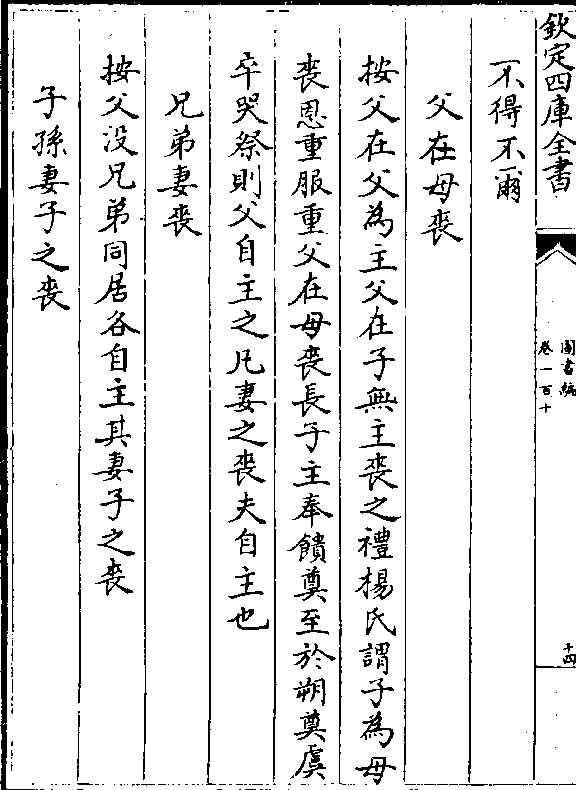 欽定四庫全書
圖書編
卷一百十
十四
不得不爾
父在母喪
按父在父為主父在子無主喪之禮楊氏謂子為母
喪恩重服重父在母喪長子主奉饋奠至於朔奠虞
卒哭祭則父自主之凡妻之喪夫自主也
兄弟妻喪
按父没兄弟同居各自主其妻子之喪
子孫妻子之喪